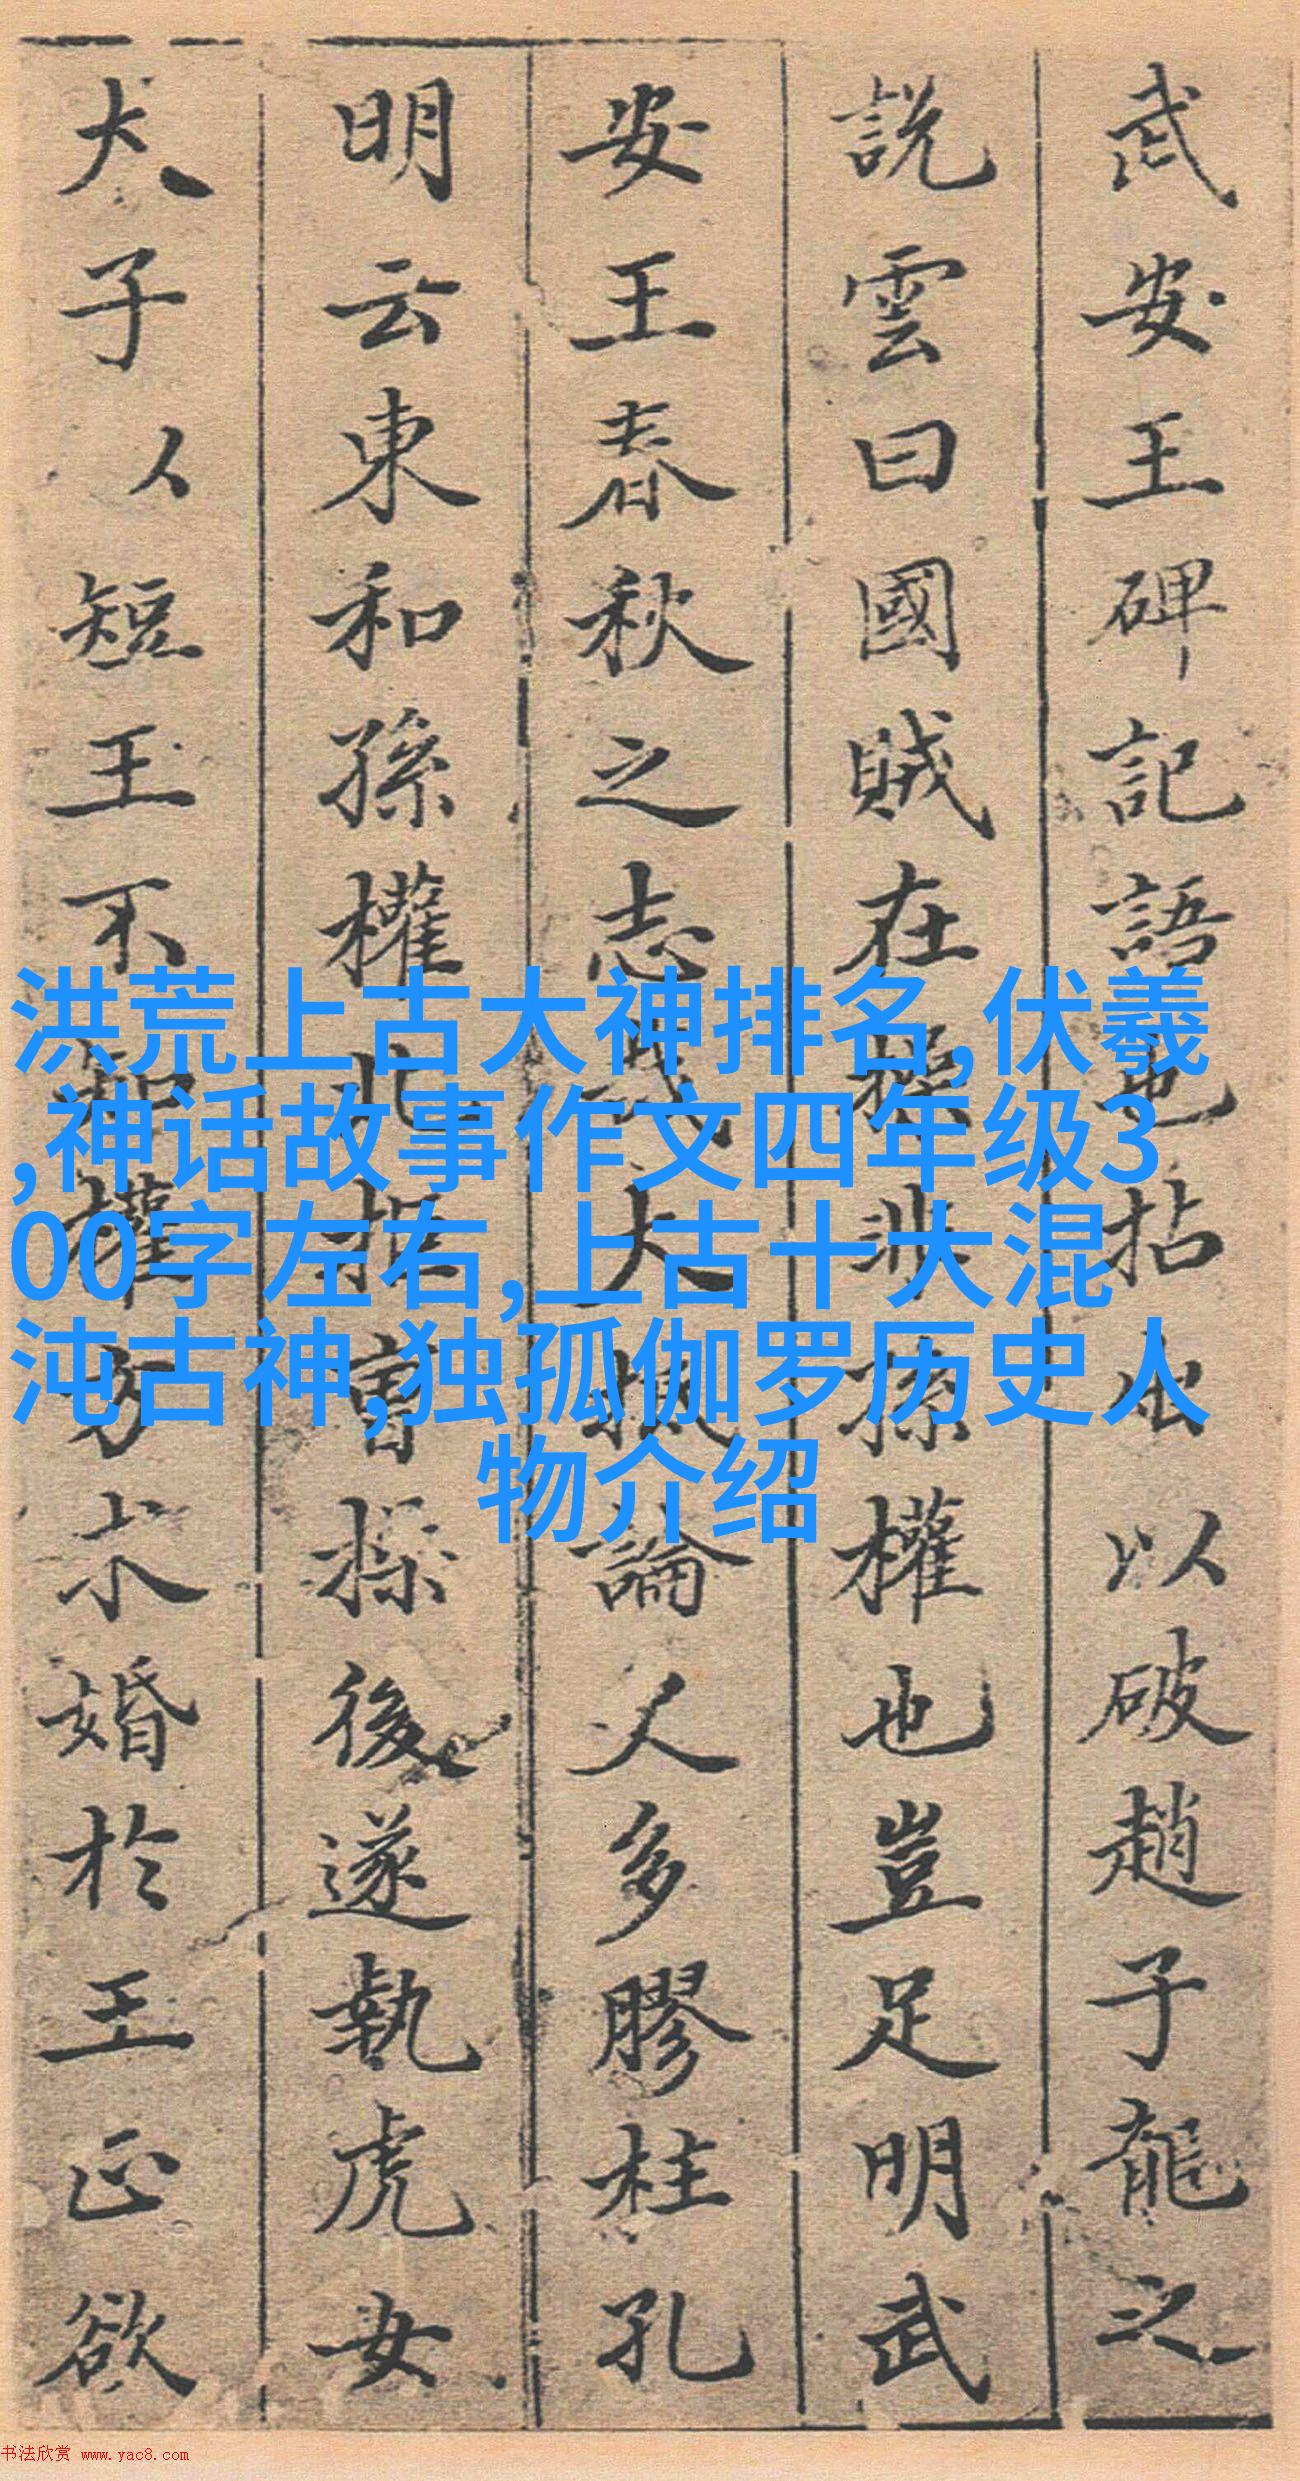 武安王碑記語也拈出以破趙子龍之
說雲曰國賊在操非孫權也豈足明武
安王春秋之志哉大抵論人多膠柱孔
明云東和孫權北拒曹操後遂執虎女
犬子以短王不知權方求婚於王正欲
洪荒上古大神排名,伏羲
,神话故事作文四年级3
00字左右,上古十大混
沌古神,独孤伽罗历史人
物介绍
书法欣赏 www.yac8.com